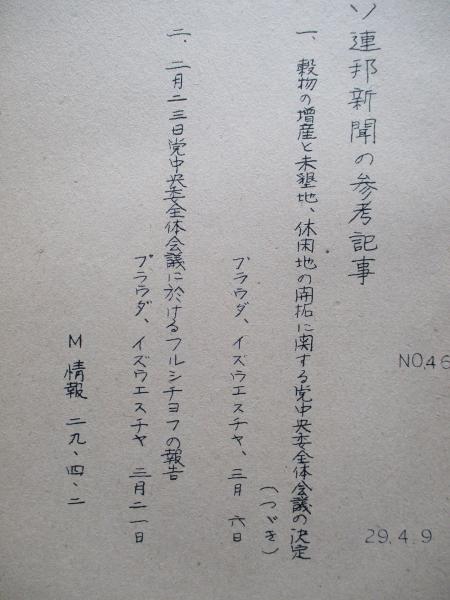 ソ連邦新聞の参考記事
NO.46
一、穀物の増産と未墾地、休閑地の開拓に関する党中央委全体会議の決定
(つづき)
プラウダ、イズウエスチャ、三月 六日
二、二月二三日党中央委全体会議に於けるフルシチョフの報告
プラウダ、イズウエスチヤ 三月二一日
M 情報 二九、四、二
29.4.9